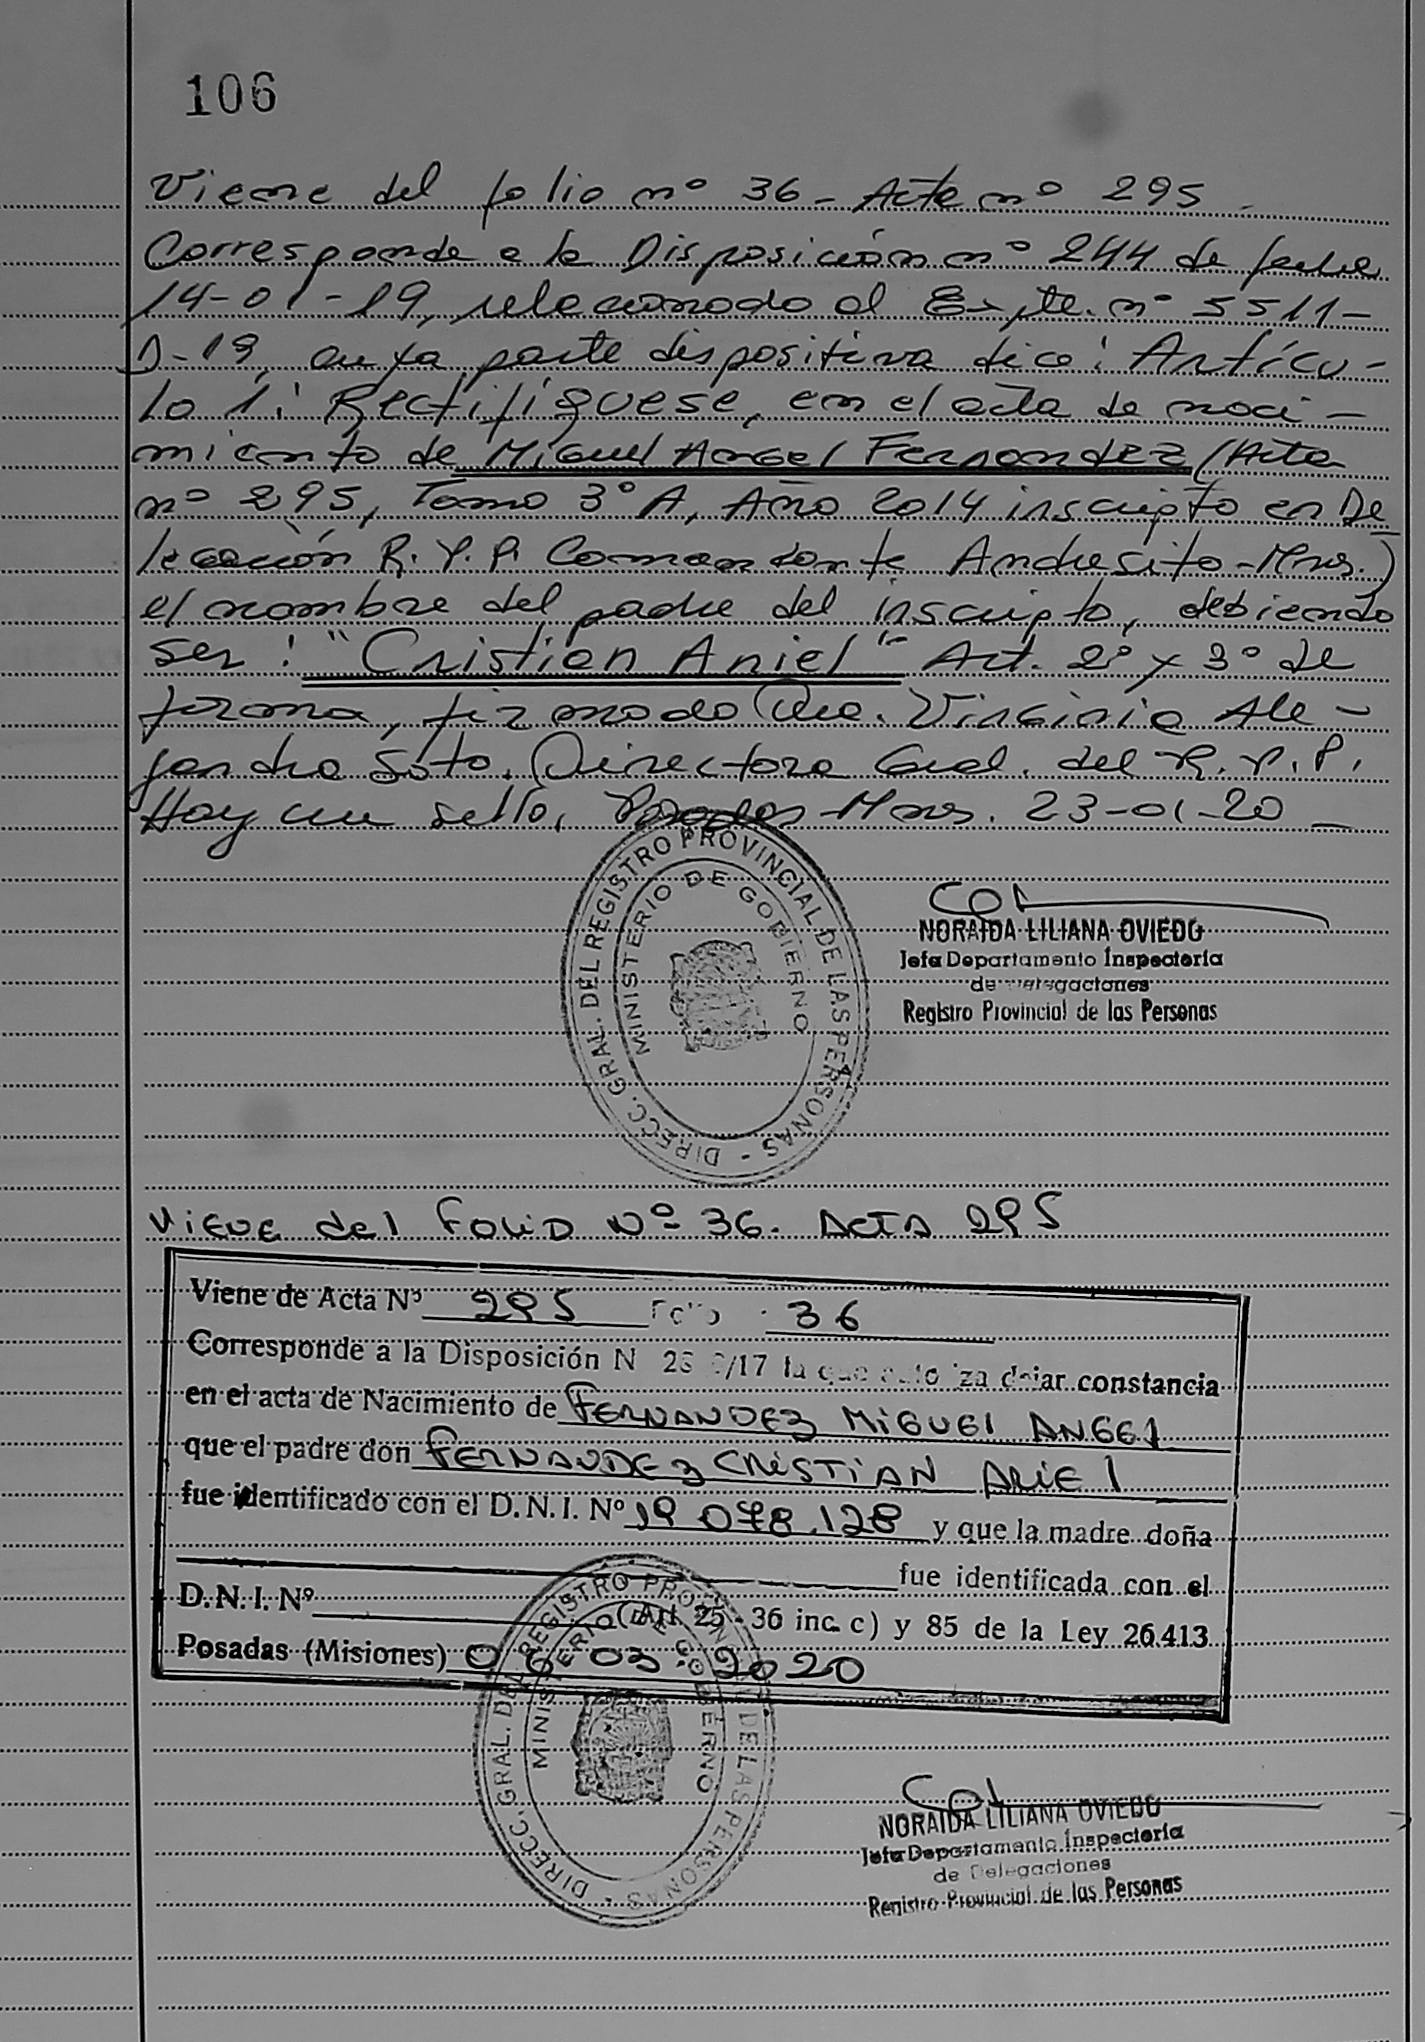 106
Viene del folio nº 36 - Acta nº 295 -
Corresponde a la Disposición nº 244 de fecha
14-01-19, relacionado al Expte. nº 5511-
D-19, cuya parte dispositiva dice: Artícu-
lo 1: Rectifíquese, en el acta de naci-
miento de Miguel Angel Fernandez (Acta
nº 295, Tomo 3º A, Año 2014 inscripto en De
legación R.P.P. Comandante Andresito-Mnes.)
el nombre del padre del inscripto, debiendo
ser: "Cristian Ariel" Art. 2º y 3º de
forma, firmado Virginia Ale-
jandra Soto. Directora Gral. del R.P.P.
Hay un sello, Posadas Mnes. 23-01-20 -
DIRECC. GRAL. DEL REGISTRO PROVINCIAL DE LAS PERSONAS -
MINISTERIO DE GOBIERNO
NORAIDA LILIANA OVIEDO
Jefa Departamento Inspectoría
de Delegaciones
Registro Provincial de las Personas
Viene del Folio Nº 36. Acta 295
Viene de Acta Nº 295 Folio 36
Corresponde a la Disposición N /17 la que autoriza dejar constancia
en el acta de Nacimiento de FERNANDEZ MIGUEL ANGEL
que el padre don FERNANDEZ CRISTIAN ARIEL
fue identificado con el D.N.I. Nº 19.078.128 y que la madre doña
fue identificada con el
D.N.I. Nº (Art. 25 - 36 inc. c) y 85 de la Ley 26.413
Posadas (Misiones) 03-2020
DIRECC. GRAL. DEL REGISTRO PROVINCIAL DE LAS PERSONAS -
MINISTERIO DE GOBIERNO
NORAIDA LILIANA OVIEDO
Jefa Departamento Inspectoría
de Delegaciones
Registro Provincial de las Personas